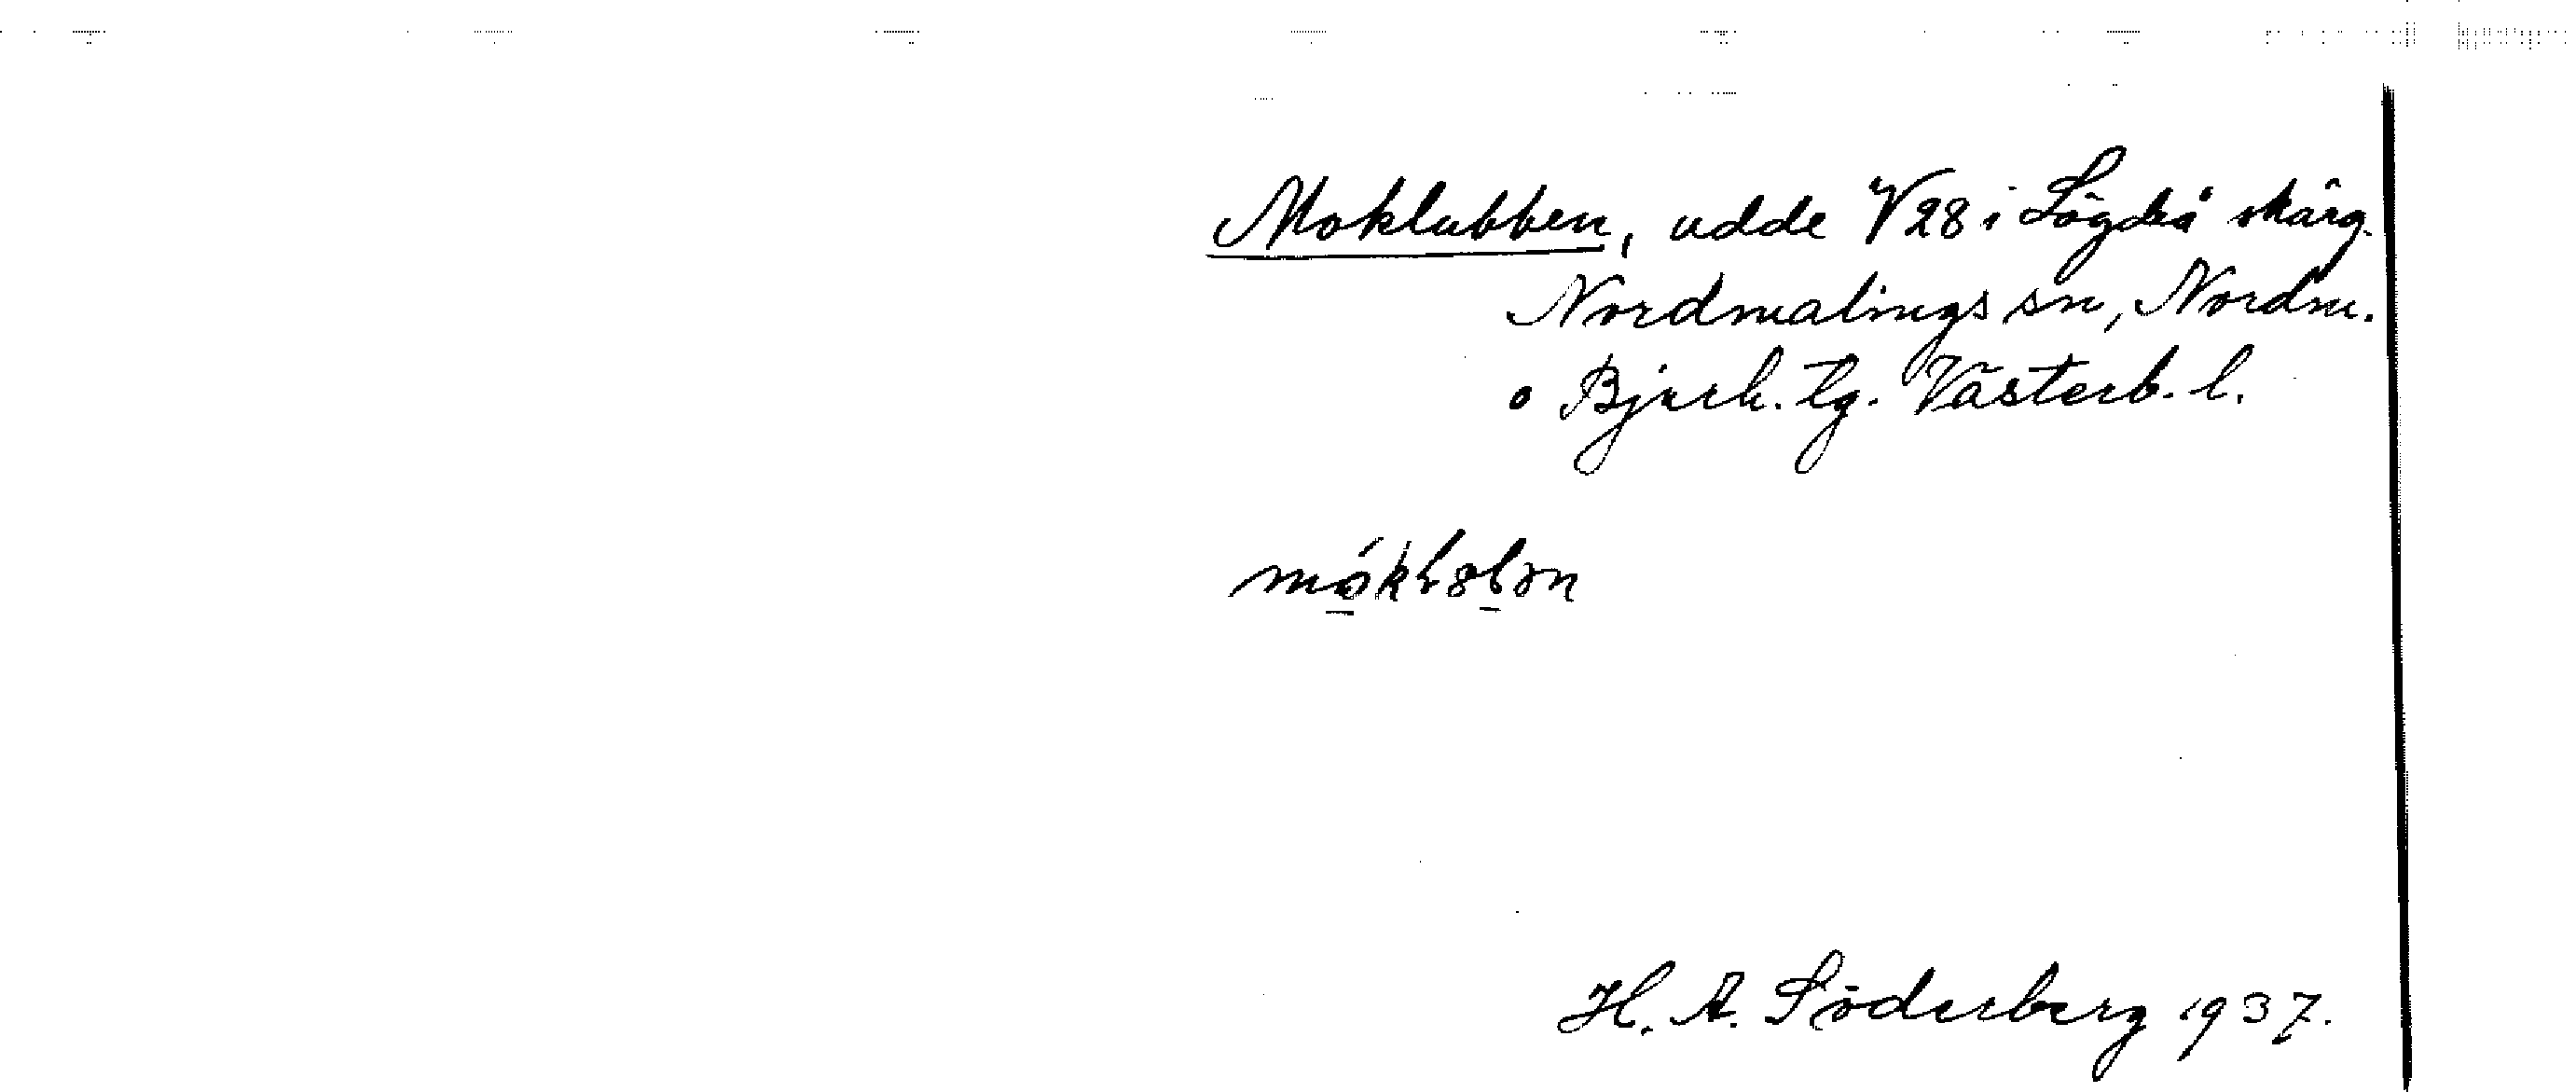 Moklubben, udde V28 i Lögdeå skärg.
Nordmalings sn, Nordm.
o Bjurh. tg. Västerb. l.
H. A. Söderberg 1937.